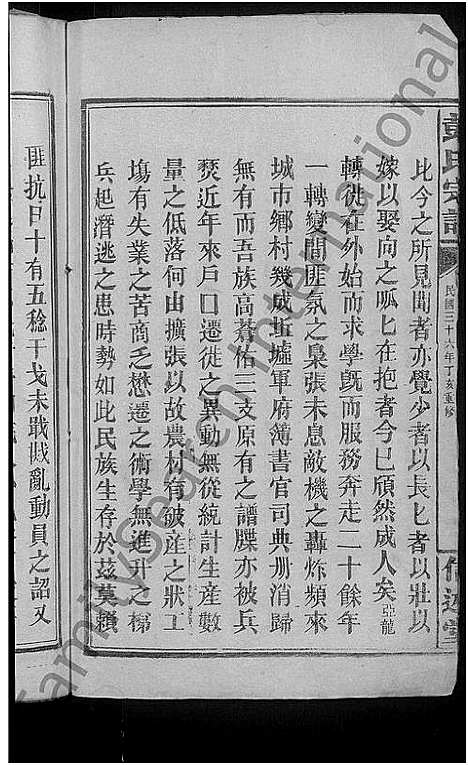 彭氏宗譜
民國三十六年丁亥重修
述堂
比今之所見聞者亦覺少者以長匕者以壯以
嫁以娶向之呱匕在抱者今已頎然成人矣亞龍
轉徙在外始而求學旣而服務奔走二十餘年
一轉變間匪氛之梟張未息敵機之轟炸頻來
城市鄉村幾成坵墟軍府簿書官司典册消歸
無有而吾族高蒼佑三支原有之譜牒亦被兵
燹近年來戶口遷徙之異動無從統計生産數
量之低落何由擴張以故農村有破産之狀工
塲有失業之苦商乏懋遷之術學無進升之梯
兵起潛逃之患時勢如此民族生存於茲莫賴
匪抗日十有五稔干戈未戢戡亂動員之詔又
FamilySearch International